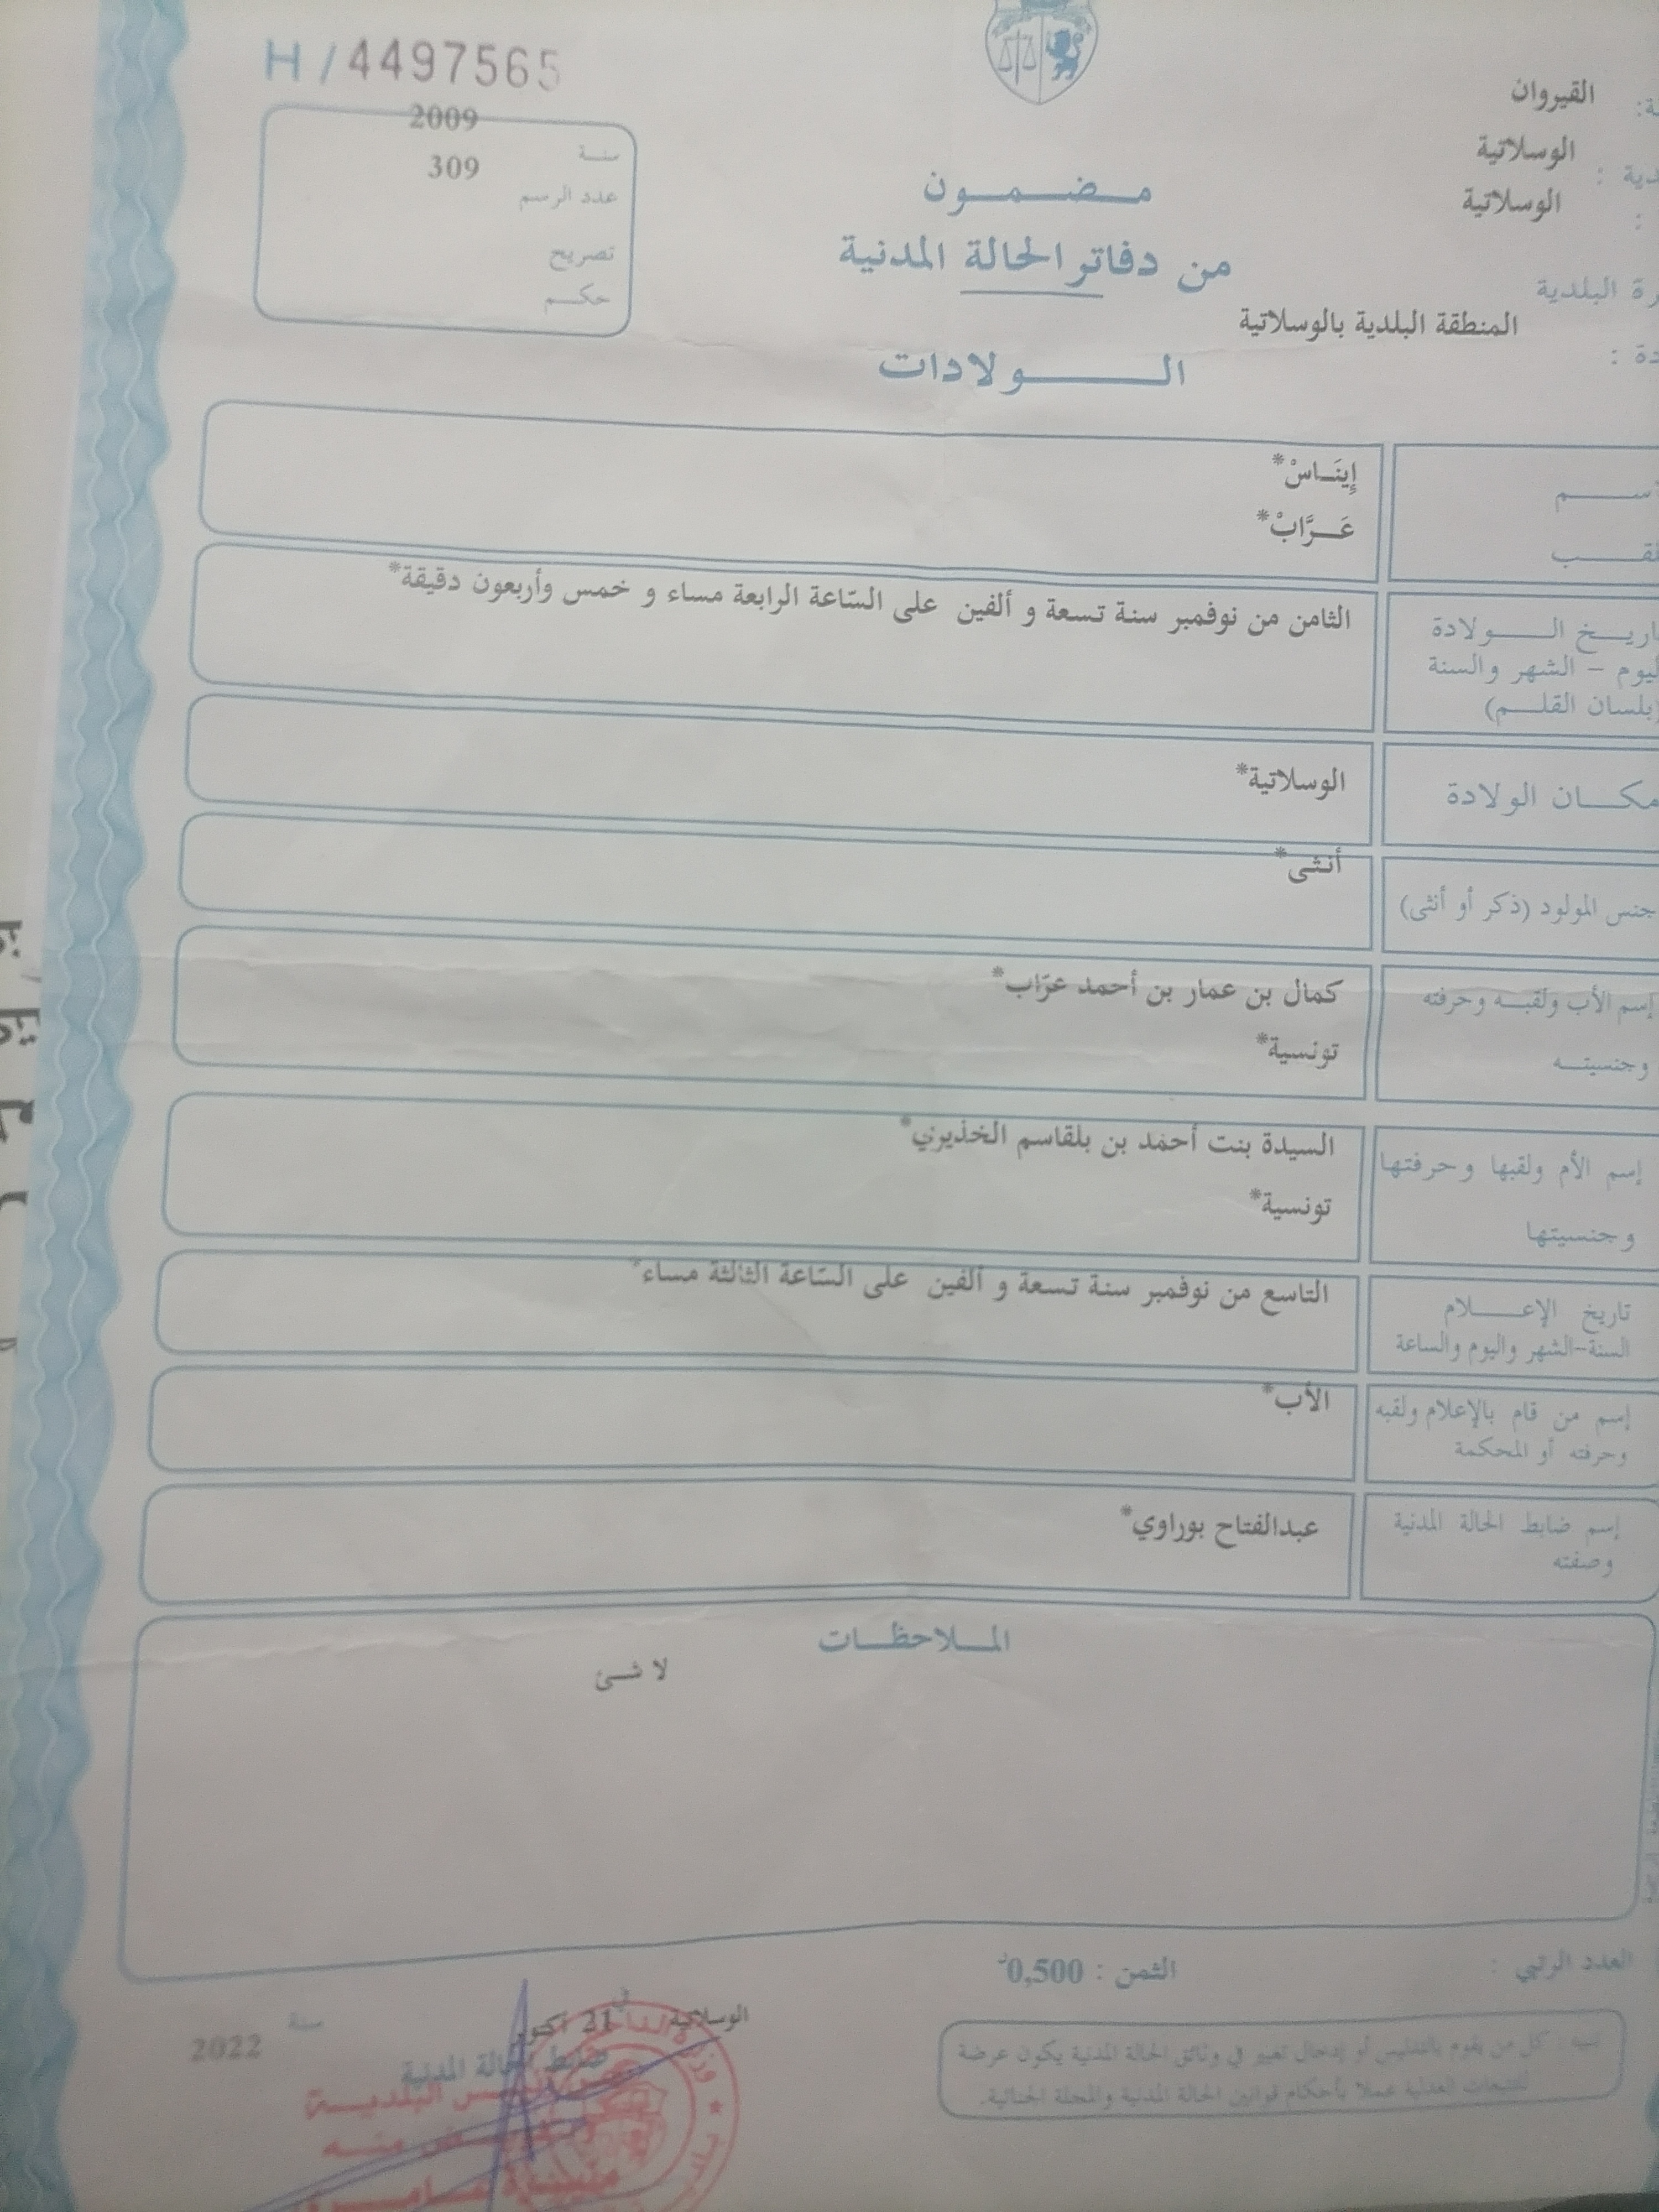 H / 4497565
القيروان
2009
سنة
الوسلاتية
309
عدد الرسم
مضمون
الوسلاتية
من دفاتر الحالة المدنية
تصريح
حكم
البلدية
المنطقة البلدية بالوسلاتية
الولادات
إِينَاسْ*
عَرَّابْ*
الثامن من نوفمبر سنة تسعة و ألفين على السّاعة الرابعة مساء و خمس وأربعون دقيقة*
الولادة
– الشهر والسنة
(بلسان القلم)
مكان الولادة
الوسلاتية*
جنس المولود (ذكر أو أنثى)
أنثى*
إسم الأب ولقبه وحرفته
كمال بن عمار بن أحمد عرّاب*
وجنسيته
تونسية*
إسم الأم ولقبها وحرفتها
السيدة بنت أحمد بن بلقاسم الخذيري*
وجنسيتها
تونسية*
تاريخ الإعلام
السنة-الشهر واليوم والساعة
التاسع من نوفمبر سنة تسعة و ألفين على السّاعة الثالثة مساء*
إسم من قام بالإعلام ولقبه
وحرفته أو المحكمة
الأب*
إسم ضابط الحالة المدنية
وصفته
عبدالفتاح بوراوي*
الملاحظات
لا شئ
العدد الرتبي :
الثمن : 0,500د
الوسلاتية في 21 أكتوبر سنة 2022
ضابط الحالة المدنية
تنبيه : كل من يقوم بالتدليس أو إدخال تغيير في وثائق الحالة المدنية يكون عرضة
للتتبعات العدلية عملا بأحكام قوانين الحالة المدنية والمجلة الجنائية.
البلدية
منه